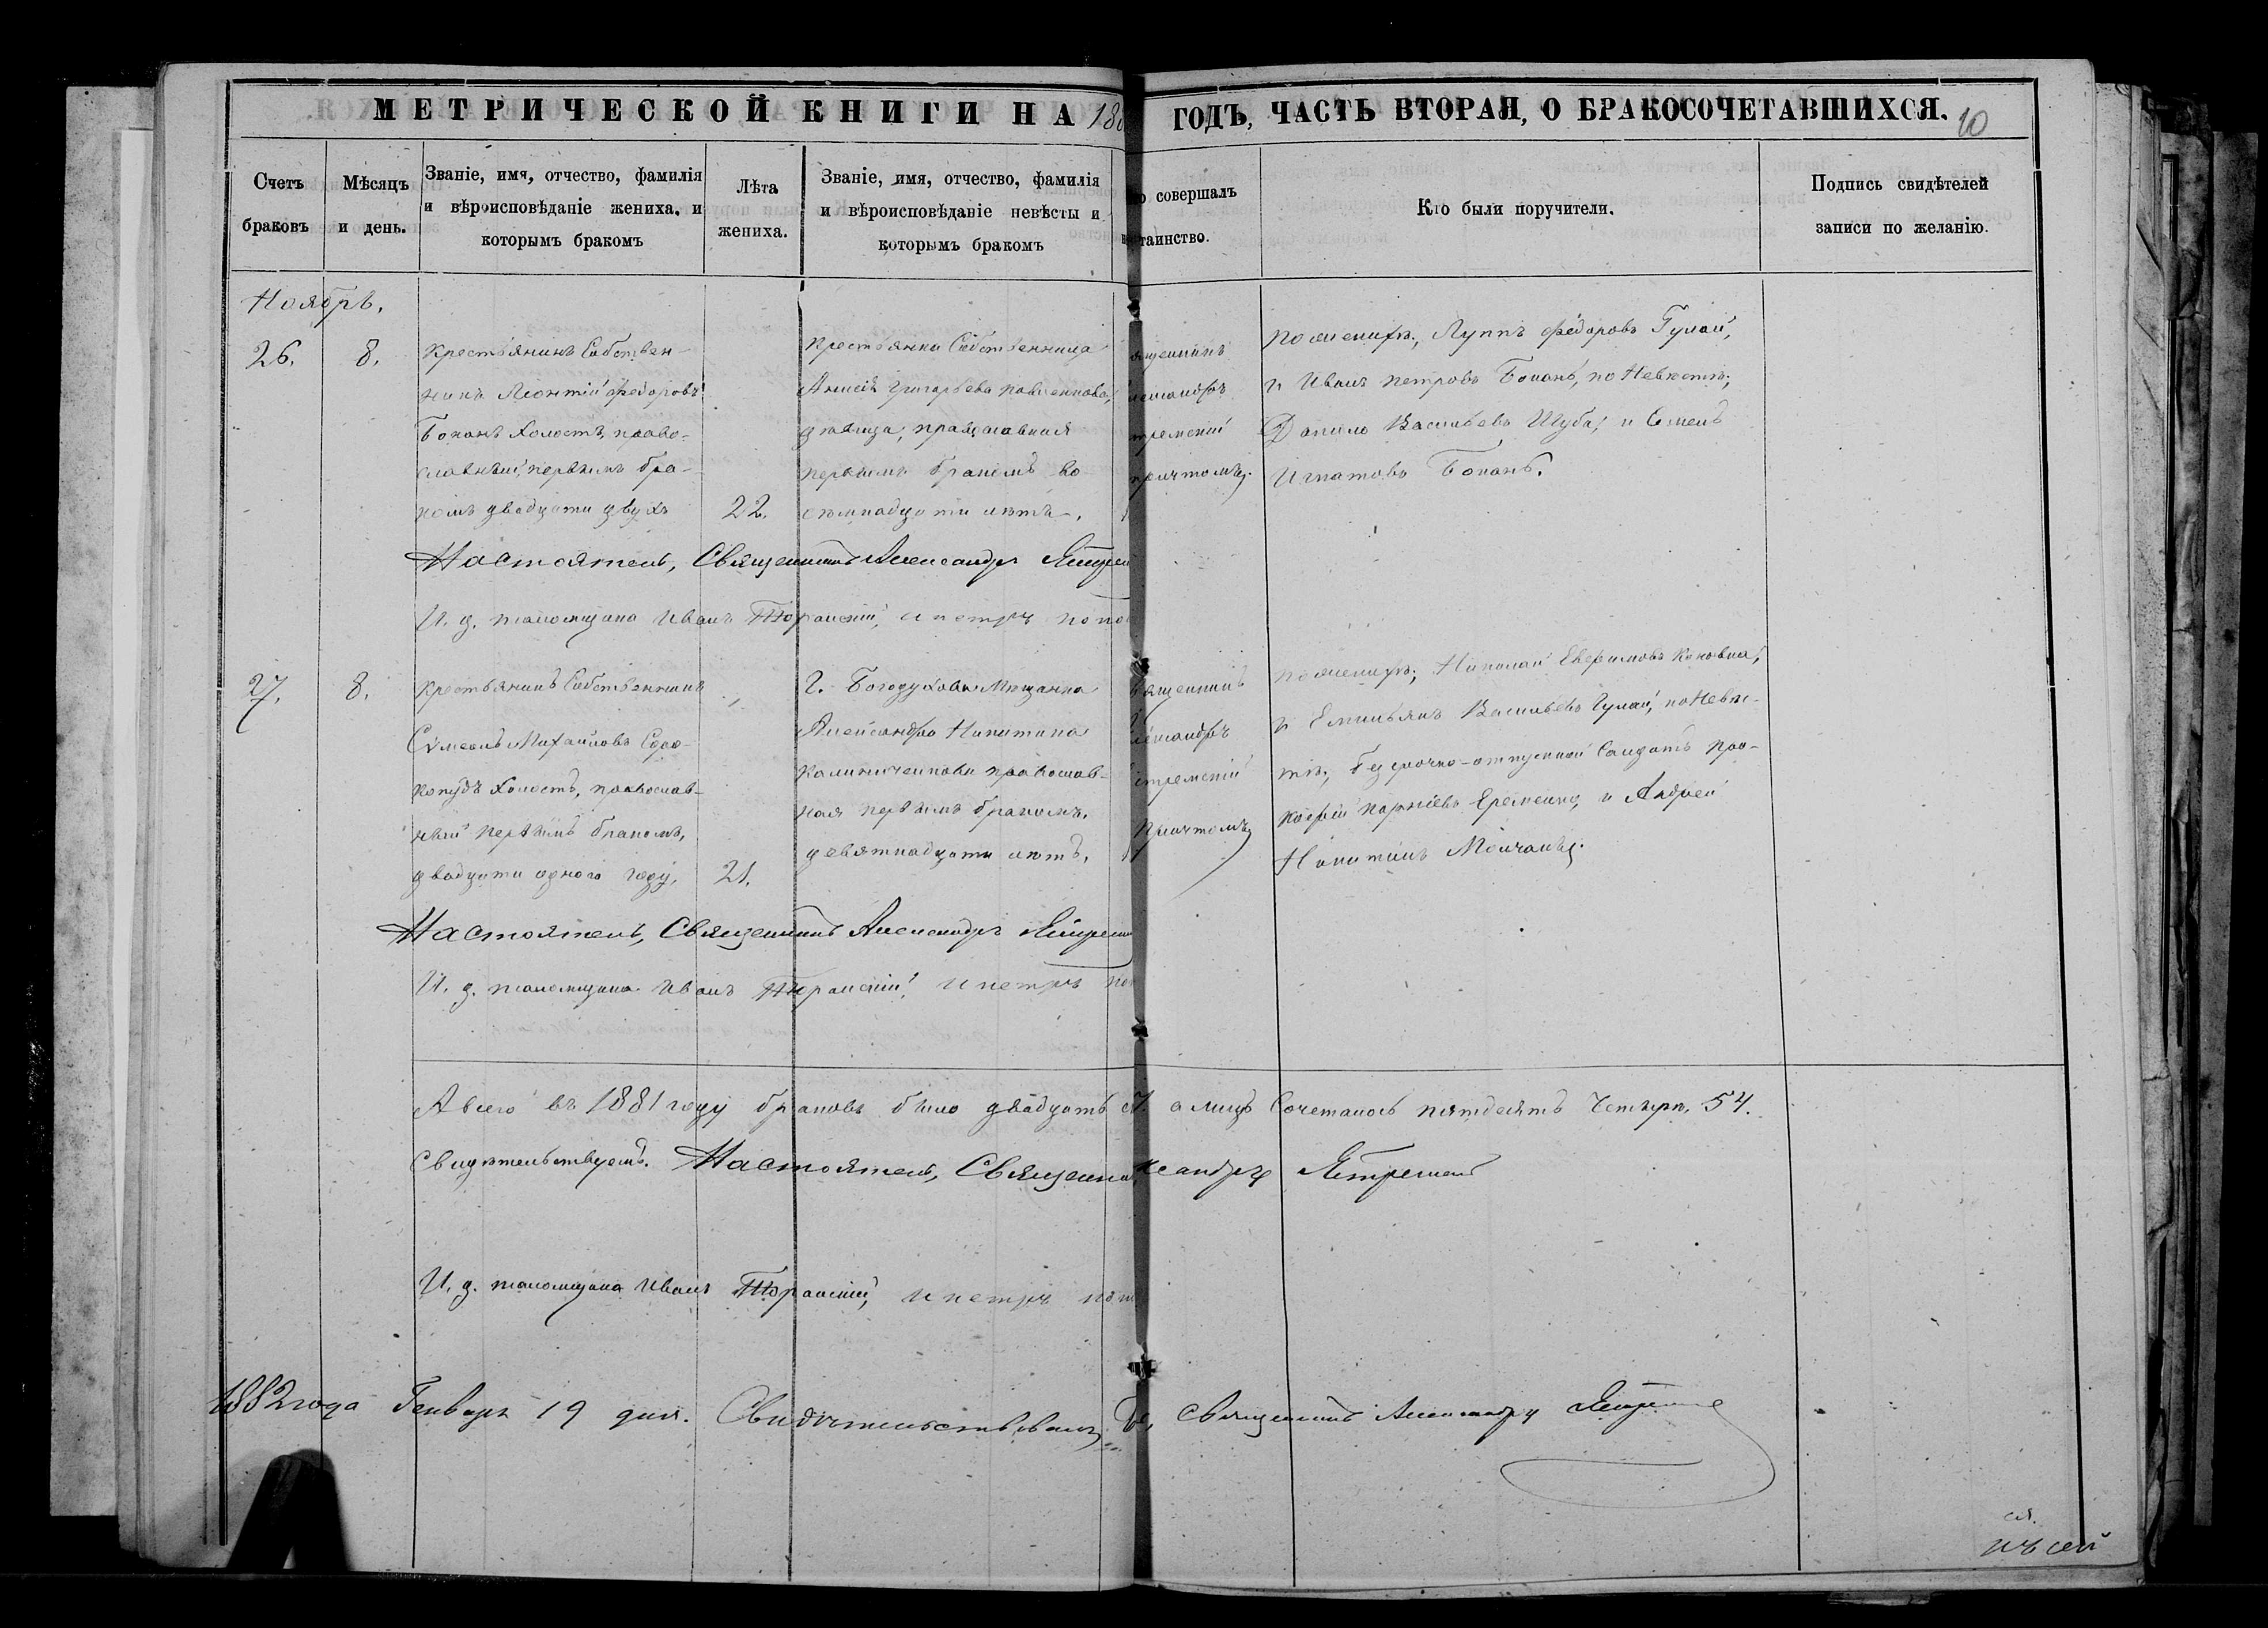 МЕТРИЧЕСКОЙ КНИГИ НА 188 ГОДЪ, ЧАСТЬ ВТОРАЯ, О БРАКОСОЧЕТАВШИХСЯ.
10
Счетъ браковъ
Мѣсяцъ и день.
Званіе, имя, отчество, фамилія
и вѣроисповѣданіе жениха, и
которымъ бракомъ
Лѣта жениха.
Званіе, имя, отчество, фамилія
и вѣроисповѣданіе невѣсты и
которымъ бракомъ
совершалъ
таинство.
Кто были поручители.
Подпись свидѣтелей
записи по желанію.
Ноябрь.
26.
8.
Крестьянинъ Собствен-
никъ Леонтій Федоровъ
Боканъ Холостъ, право-
славный, первымъ бра-
комъ двадцати двухъ
22.
Крестьянка Собственница
Анисія Григорьева Павленкова,
дѣвица, православная
первымъ бракомъ во
семнадцати лѣтъ.
ященникъ
лександръ
тремскій
причтомъ.
По женихѣ, Луппъ Федоровъ Гулай,
и Иванъ Петровъ Боканъ, по Невѣстѣ;
Данило Васильевъ Шуба, и Семенъ
Игнатовъ Боканъ.
Настоятель, Священникъ Александръ
И. д. псаломщика Иванъ и Петръ
27.
8.
Крестьянинъ Собственникъ
Симеонъ Михайловъ
Холостъ, православ-
ный первымъ бракомъ,
двадцати одного году,
21.
Г. Богодухова Мѣщанка
Александра Никитина
Калиниченкова православ-
ная первымъ бракомъ,
девятнадцати лѣтъ.
вященникъ
лександръ
стремскій
Причтомъ
По женихѣ; Николай Евфимовъ Коновка,
и Емильянъ Васильевъ Гулай, по Невѣс-
тѣ; безсрочно-отпускной Солдатъ Про-
кофій Еременко, и Андрей
Никитинъ Молчанъ.
Настоятель, Священникъ Александръ
И. д. псаломщика Иванъ и Петръ
А всего въ 1881 году браковъ было двадцать а лицъ Сочеталось пятдесятъ Четыре. 54.
Свидѣтельствуемъ. Настоятель, Священни ксандръ
И. д. псаломщика Иванъ и Петръ
1882 года Генваря 19 дня. Свидѣтельствовалъ Священникъ Александръ